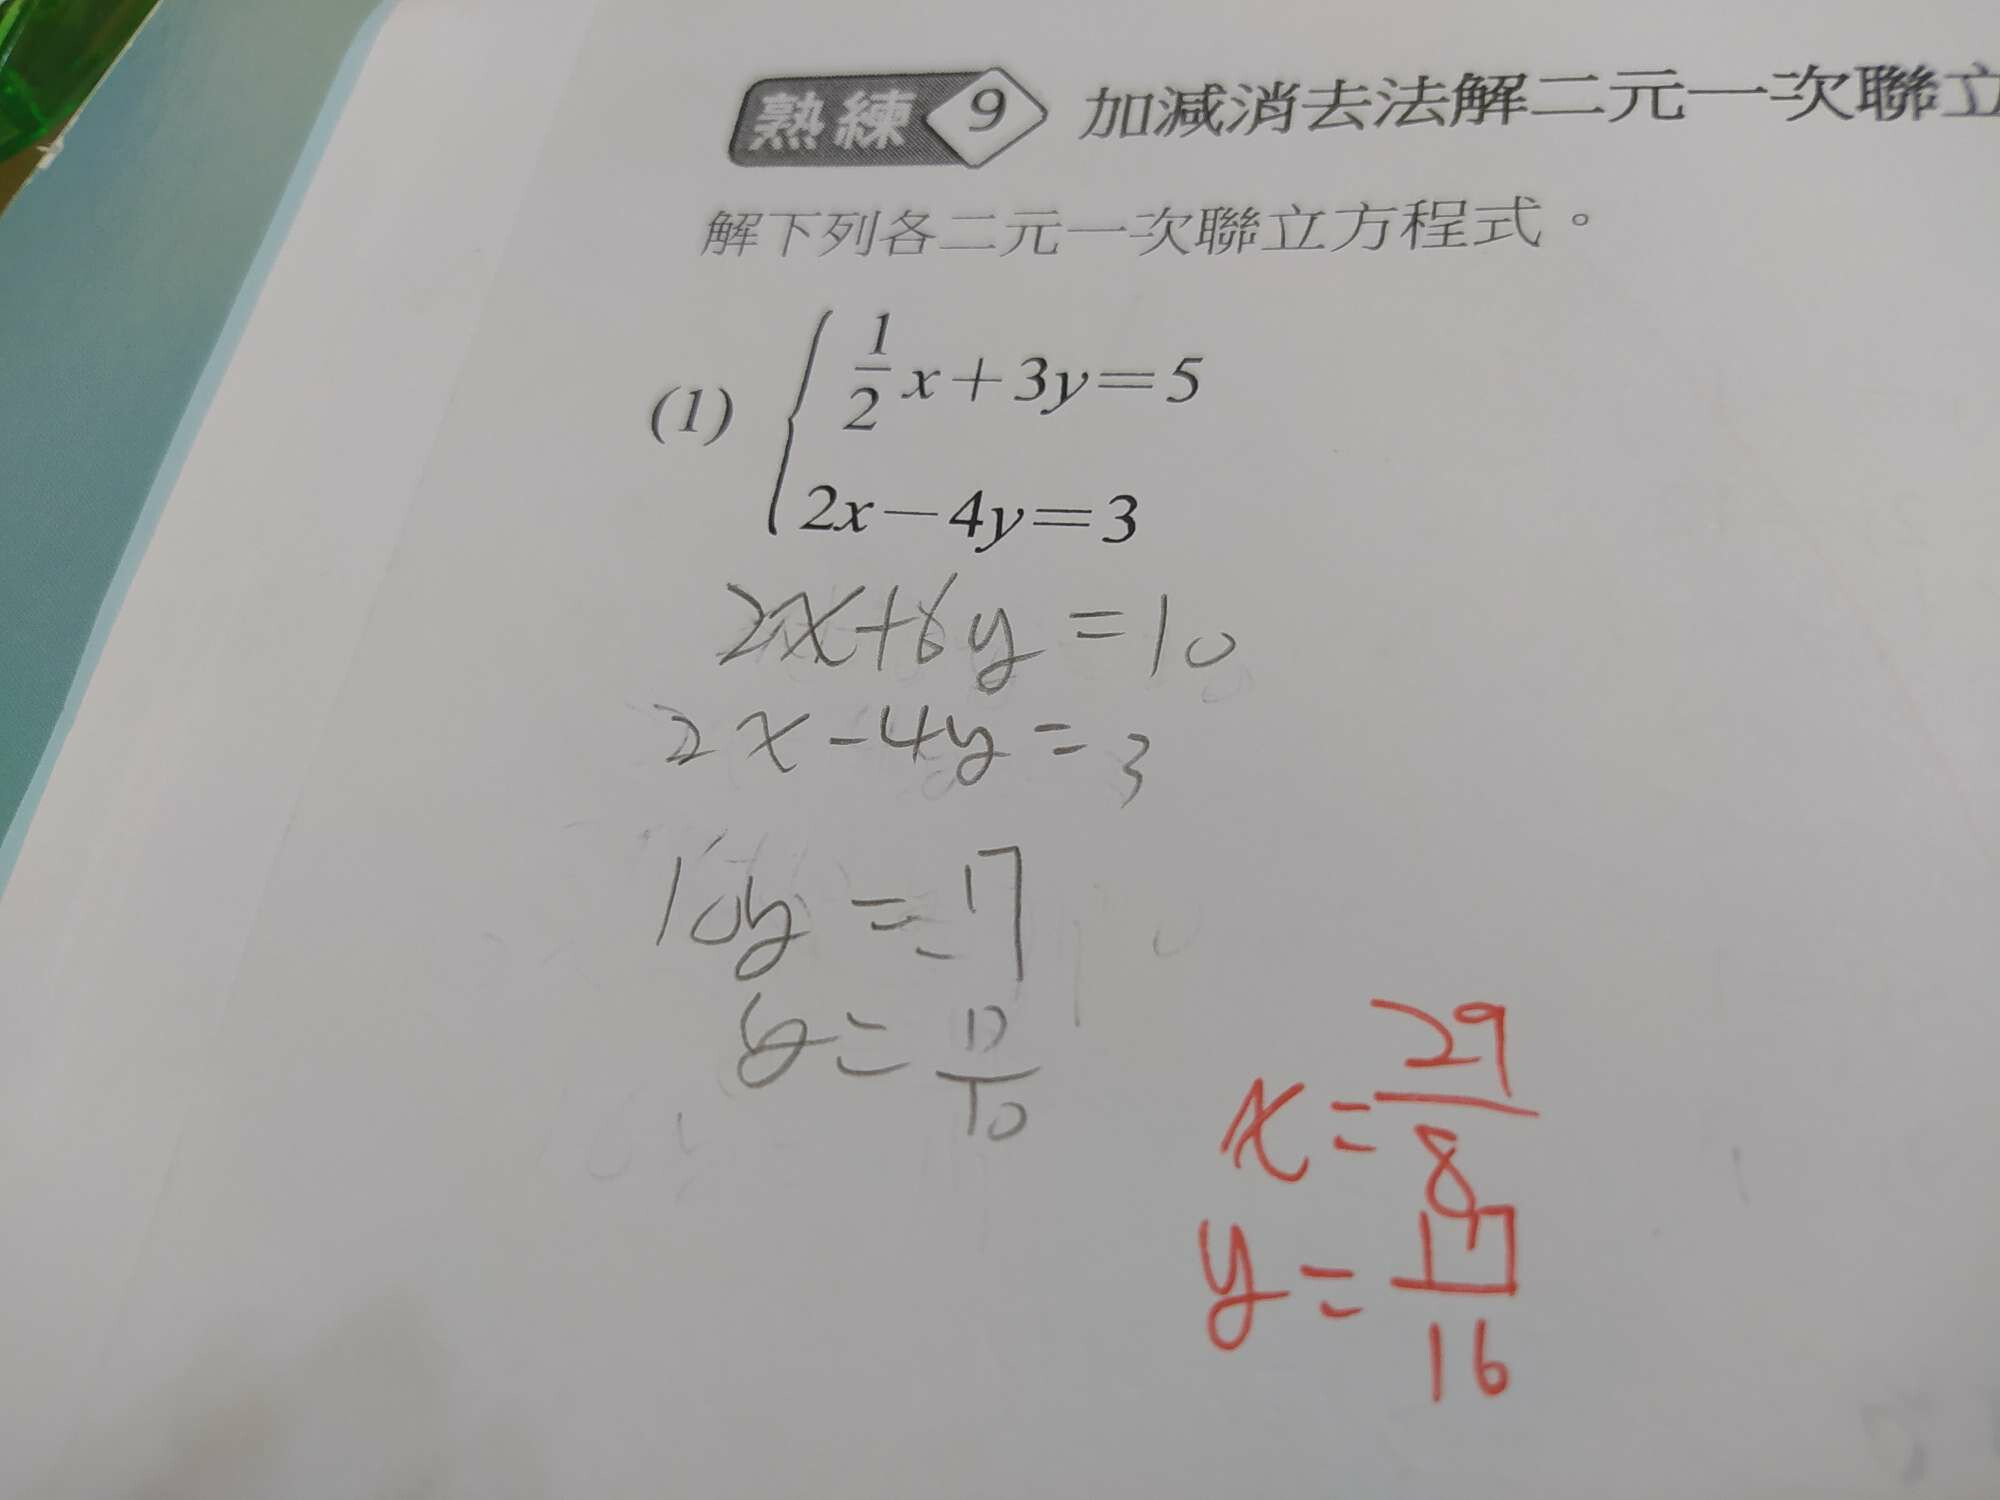 熟練 9 加減消去法解二元一次聯立
解下列各二元一次聯立方程式。
(1) { 1/2 x+3y=5
2x-4y=3
2x+6y=10
2x-4y=3
10y=-17
y=17/10
x=29/8
y=17/16